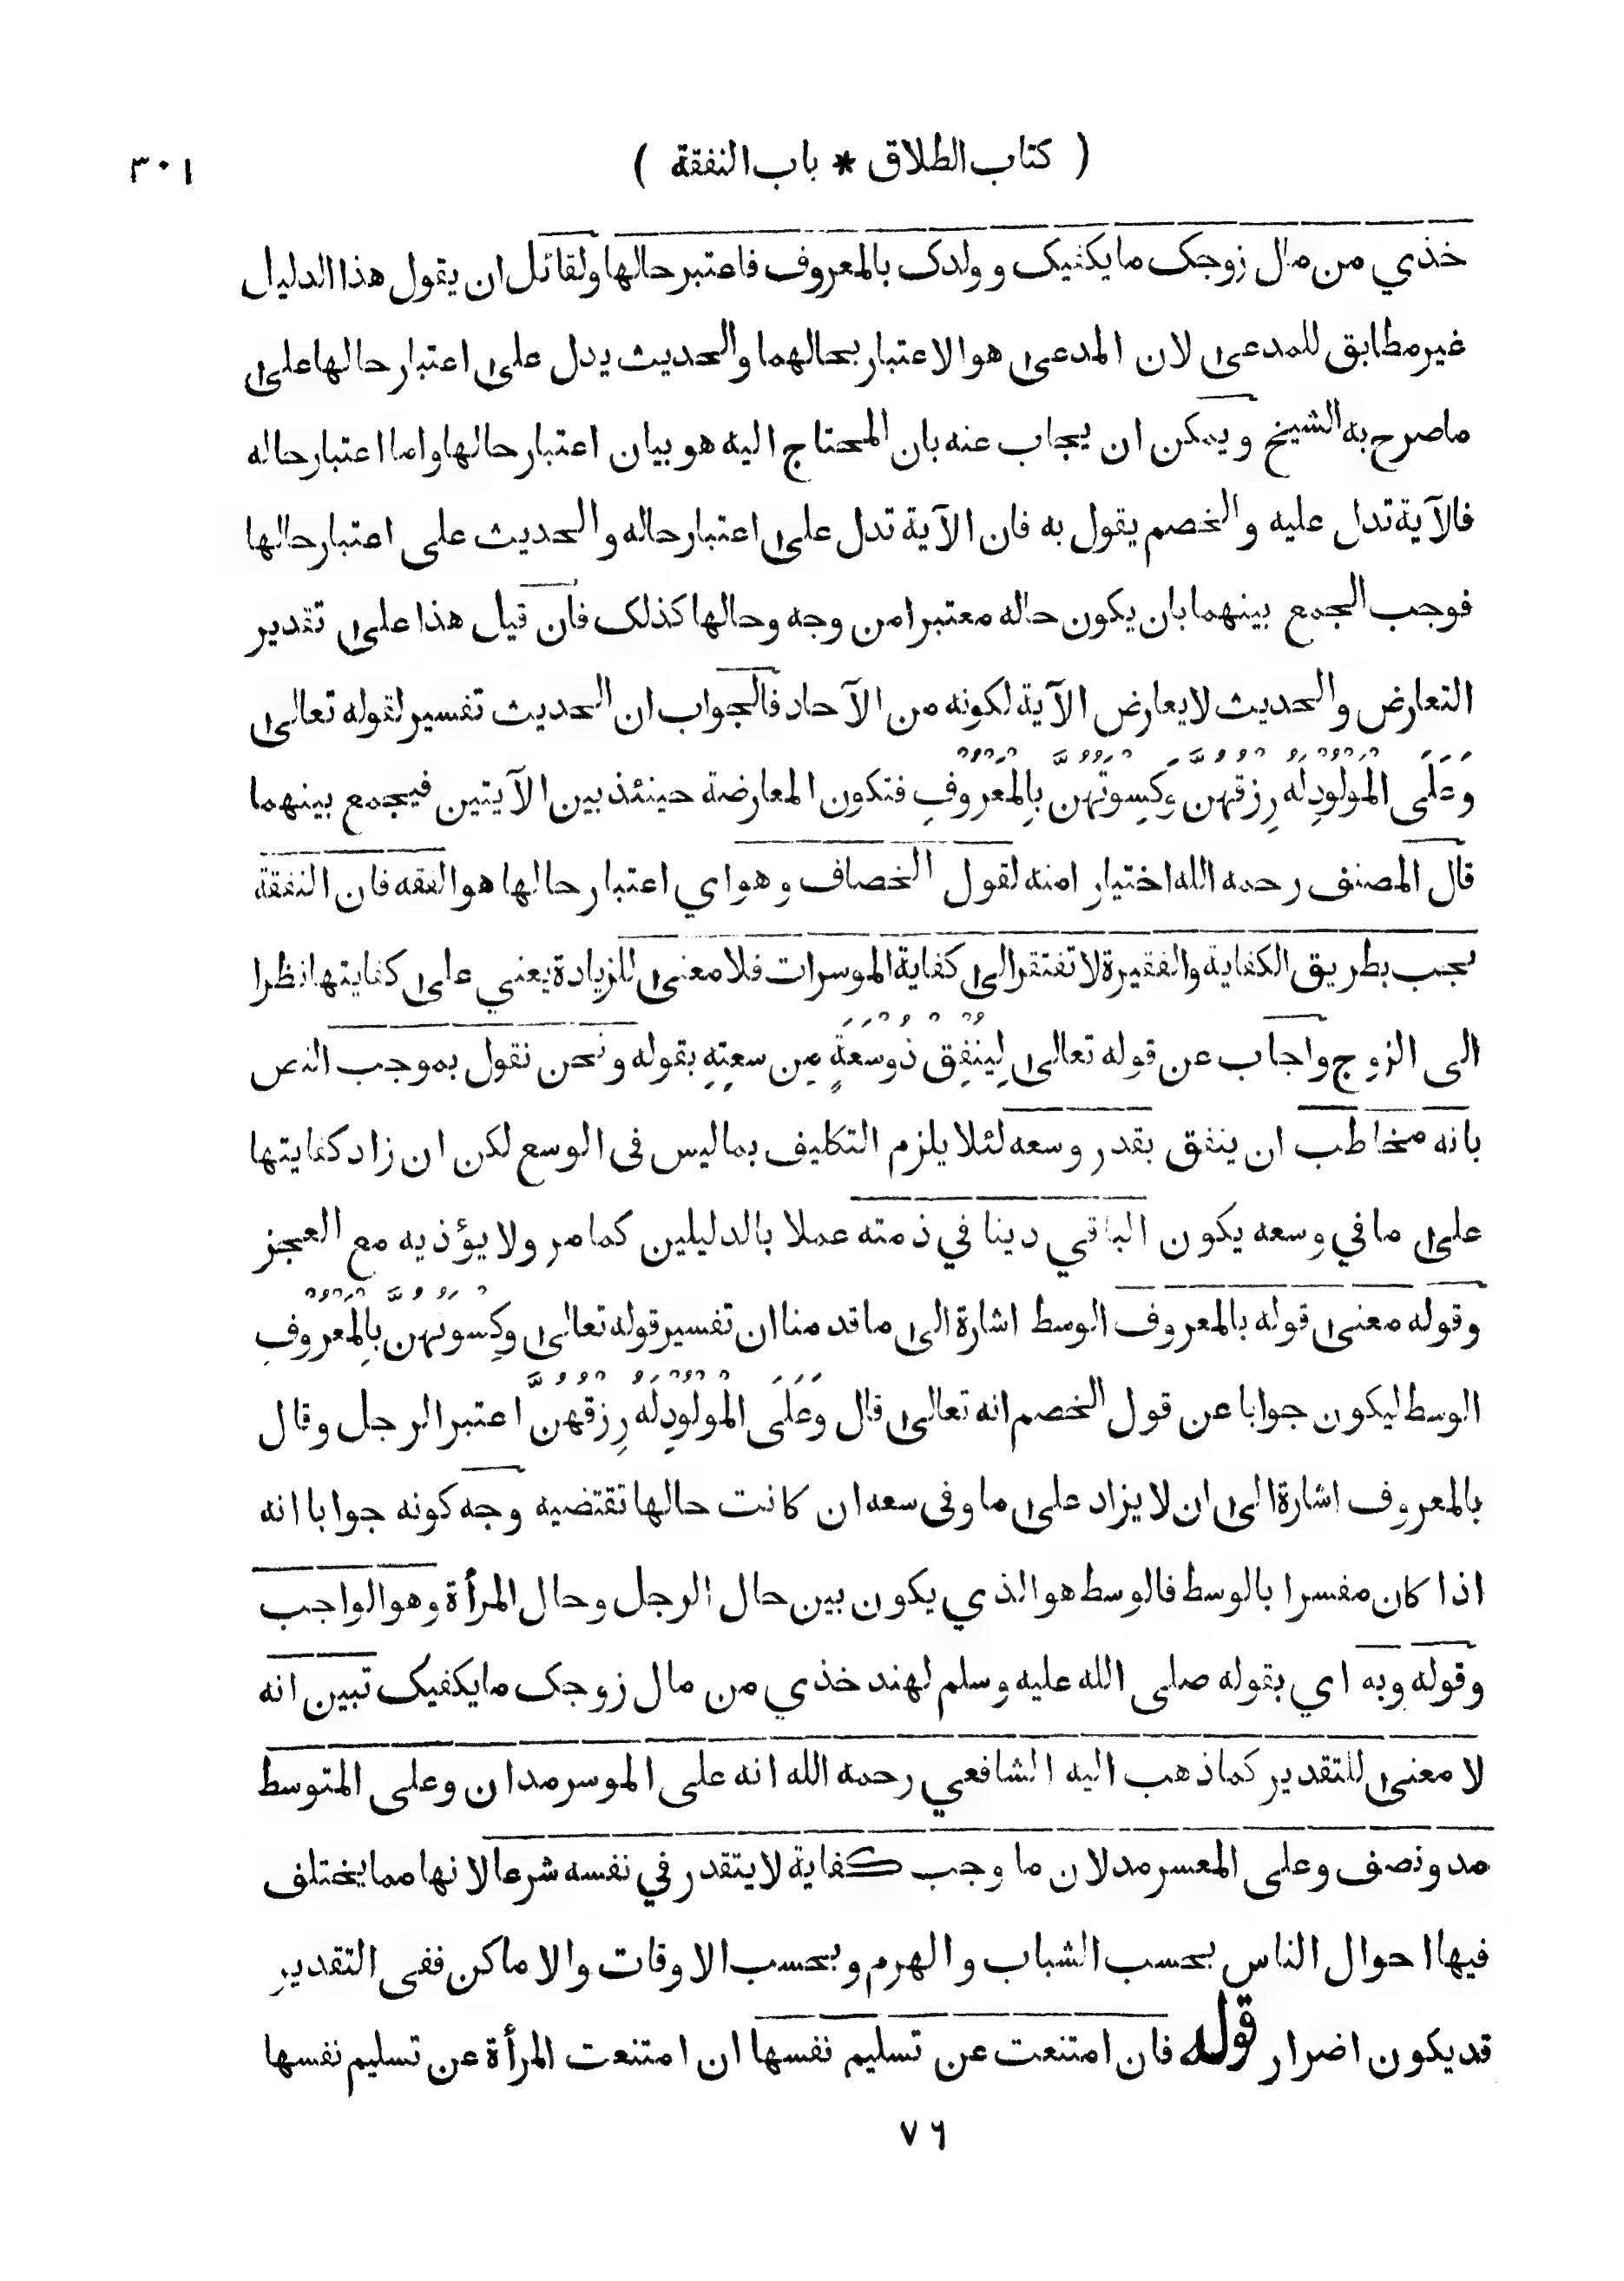 ( كتاب الطلاق * باب النفقة ) ٣٠١
خذي من مال زوجك ما يكفيك و ولدك بالمعروف فاعتبر حالها ولقائل ان يقول هذا الدليل
غير مطابق للمدعى لان المدعى هو الاعتبار بحالهما والحديث يدل على اعتبار حالها على
ما صرح به الشيخ ويمكن ان يجاب عنه بان المحتاج اليه هو بيان اعتبار حالها واما اعتبار حاله
فالآية تدل عليه والخصم يقول به فان الآية تدل على اعتبار حاله والحديث على اعتبار حالها
فوجب الجمع بينهما بان يكون حاله معتبرا من وجه وحالها كذلك فان قيل هذا على تقدير
التعارض والحديث لا يعارض الآية لكونه من الآحاد فالجواب ان الحديث تفسير لقوله تعالى
وَعَلَى الْمَوْلُودِ لَهُ رِزْقُهُنَّ وَكِسْوَتُهُنَّ بِالْمَعْرُوفِ فتكون المعارضة حينئذ بين الآيتين فيجمع بينهما
قال المصنف رحمه الله اختيار امنه لقول الخصاف وهو اي اعتبار حالها هو الفقه فان النفقة
تجب بطريق الكفاية والفقيرة لا تفتقر الى كفاية الموسرات فلا معنى للزيادة يعني على كفايتها نظرا
الى الزوج واجاب عن قوله تعالى لِيُنْفِقْ ذُو سَعَةٍ مِن سَعَتِهِ بقوله ونحن نقول بموجب النص
بانه مخاطب ان ينفق بقدر وسعه لئلا يلزم التكليف بما ليس فى الوسع لكن ان زاد كفايتها
على ما في وسعه يكون الباقي دينا في ذمته عملا بالدليلين كما مر ولا يؤذيه مع العجز
وقوله معنى قوله بالمعروف الوسط اشارة الى ما قدمنا ان تفسير قوله تعالى وَكِسْوَتُهُنَّ بِالْمَعْرُوفِ
الوسط ليكون جوابا عن قول الخصم انه تعالى قال وَعَلَى الْمَوْلُودِ لَهُ رِزْقُهُنَّ اعتبر الرجل وقال
بالمعروف اشارة الى ان لا يزاد على ما وفى سعه ان كانت حالها تقتضيه وجه كونه جوابا انه
اذا كان مفسرا بالوسط فالوسط هو الذي يكون بين حال الرجل وحال المرأة وهو الواجب
وقوله وبه اي بقوله صلى الله عليه وسلم لهند خذي من مال زوجك ما يكفيك تبين انه
لا معنى للتقدير كما ذهب اليه الشافعي رحمه الله انه على الموسر مدان وعلى المتوسط
مد ونصف وعلى المعسر مد لان ما وجب كفاية لا يتقدر في نفسه شرعا لانها مما يختلف
فيها احوال الناس بحسب الشباب والهرم وبحسب الاوقات والاماكن ففى التقدير
قد يكون اضرار قوله فان امتنعت عن تسليم نفسها ان امتنعت المرأة عن تسليم نفسها
٧٦